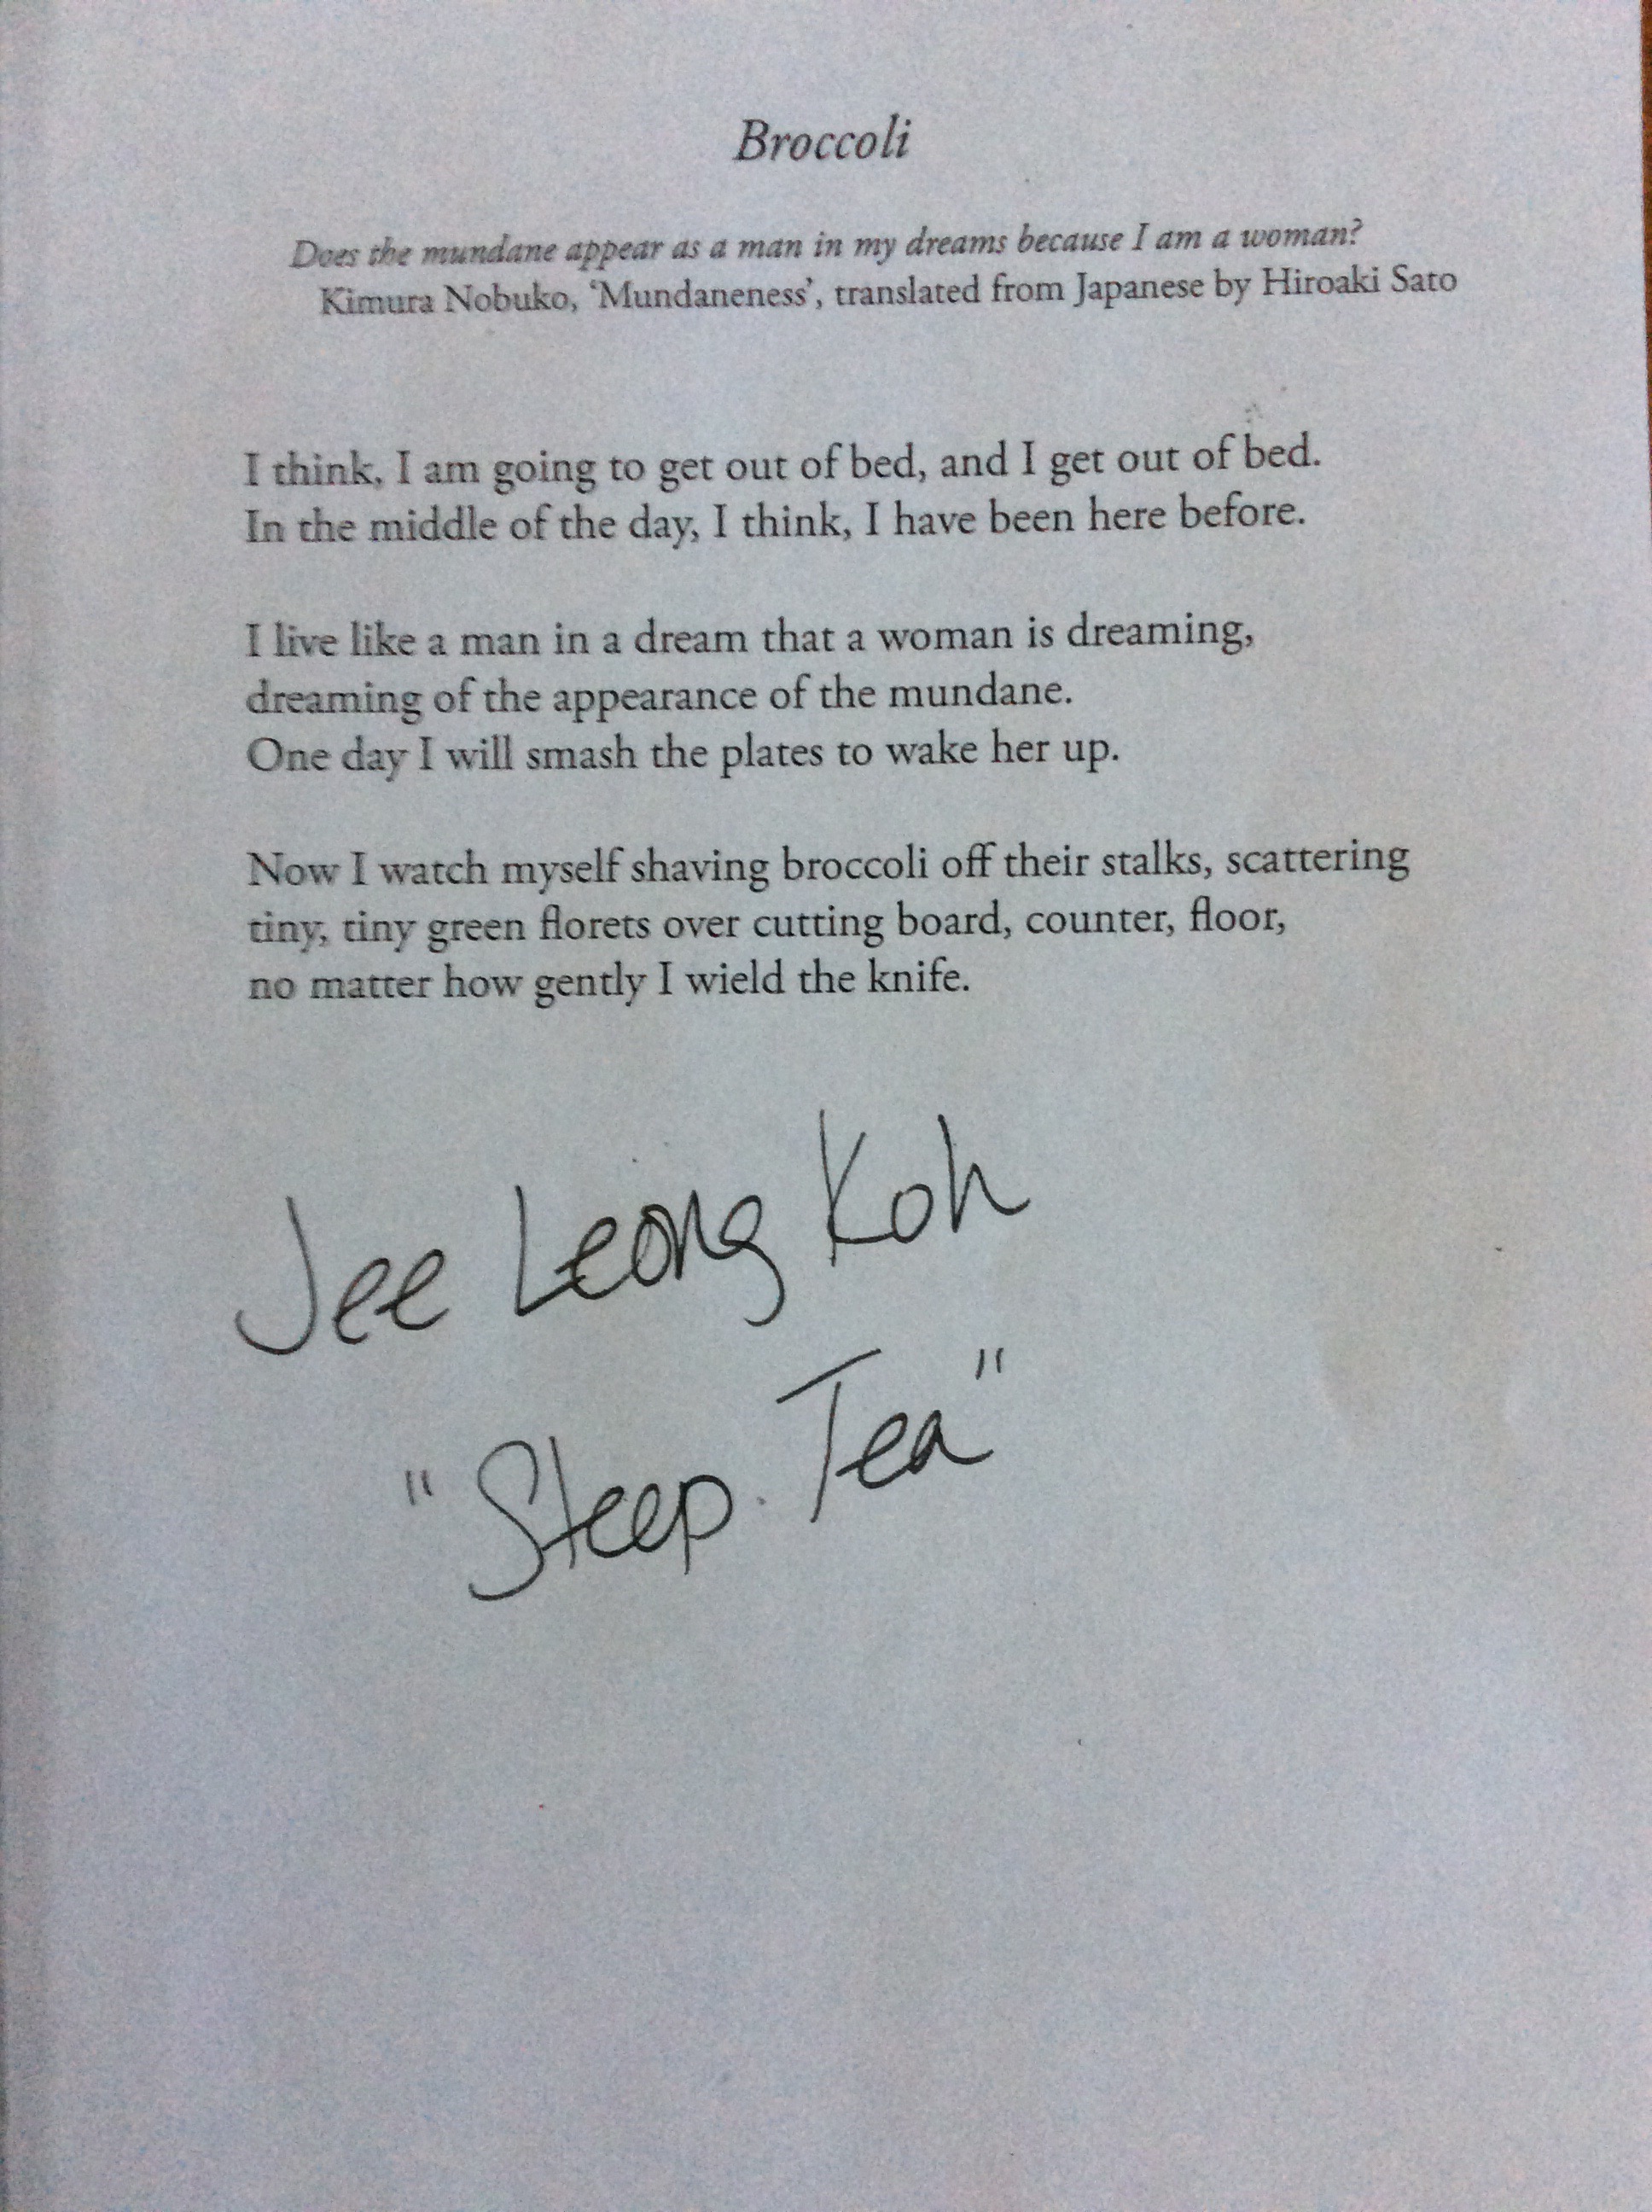 Broccoli
Does the mundane appear as a man in my dreams because I am a woman?
Kimura Nobuko, ‘Mundaneness’, translated from Japanese by Hiroaki Sato
I think, I am going to get out of bed, and I get out of bed.
In the middle of the day, I think, I have been here before.
I live like a man in a dream that a woman is dreaming,
dreaming of the appearance of the mundane.
One day I will smash the plates to wake her up.
Now I watch myself shaving broccoli off their stalks, scattering
tiny, tiny green florets over cutting board, counter, floor,
no matter how gently I wield the knife.
Jee Leong Koh
"Steep Tea"